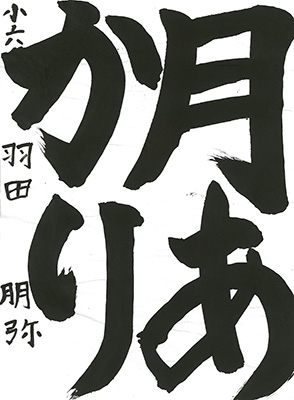 月あ
かり
小六 羽田 朋弥